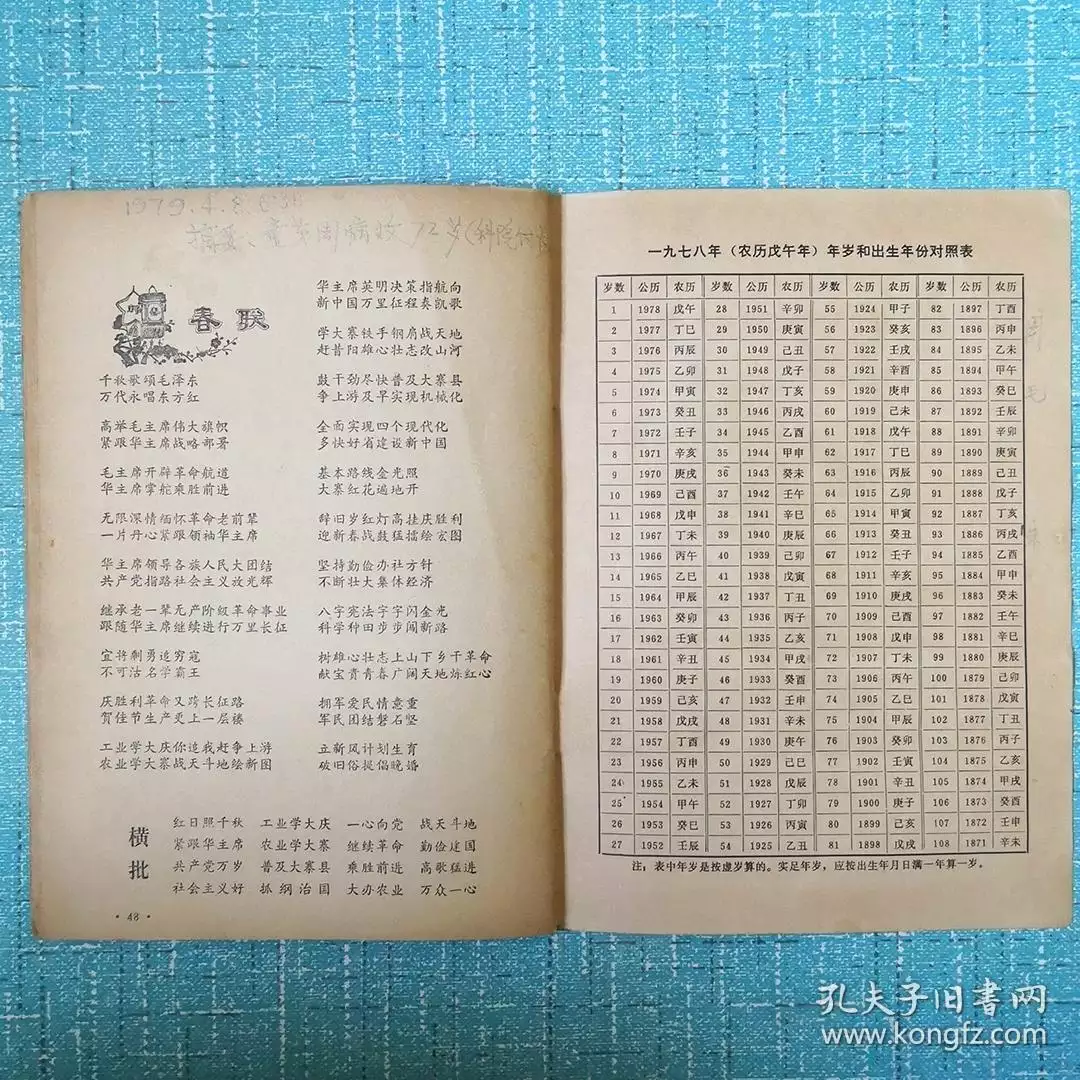 1979.4.8.
72岁(科院
春联
千秋歌颂毛泽东
万代永唱东方红
高举毛主席伟大旗帜
紧跟华主席战略部署
毛主席开辟革命航道
华主席掌舵乘胜前进
无限深情缅怀革命老前辈
一片丹心紧跟领袖华主席
华主席领导各族人民大团结
共产党指路社会主义放光辉
继承老一辈无产阶级革命事业
跟随华主席继续进行万里长征
宜将剩勇追穷寇
不可沽名学霸王
庆胜利革命又跨长征路
贺佳节生产更上一层楼
工业学大庆你追我赶争上游
农业学大寨战天斗地绘新图
华主席英明决策指航向
新中国万里征程奏凯歌
学大寨铁手钢肩战天地
赶昔阳雄心壮志改山河
鼓干劲尽快普及大寨县
争上游及早实现机械化
全面实现四个现代化
多快好省建设新中国
基本路线金光照
大寨红花遍地开
辞旧岁红灯高挂庆胜利
迎新春战鼓猛擂绘宏图
坚持勤俭办社方针
不断壮大集体经济
八字宪法字字闪金光
科学种田步步闯新路
树雄心壮志上山下乡干革命
献宝贵青春广阔天地炼红心
拥军爱民情意重
军民团结磐石坚
立新风计划生育
破旧俗提倡晚婚
横批
红日照千秋 工业学大庆 一心向党 战天斗地
紧跟华主席 农业学大寨 继续革命 勤俭建国
共产党万岁 普及大寨县 乘胜前进 高歌猛进
社会主义好 抓纲治国 大办农业 万众一心
· 48 ·
一九七八年（农历戊午年）年岁和出生年份对照表
岁数 公历 农历 岁数 公历 农历 岁数 公历 农历 岁数 公历 农历
1 1978 戊午 28 1951 辛卯 55 1924 甲子 82 1897 丁酉
2 1977 丁巳 29 1950 庚寅 56 1923 癸亥 83 1896 丙申
3 1976 丙辰 30 1949 己丑 57 1922 壬戌 84 1895 乙未
4 1975 乙卯 31 1948 戊子 58 1921 辛酉 85 1894 甲午
5 1974 甲寅 32 1947 丁亥 59 1920 庚申 86 1893 癸巳
6 1973 癸丑 33 1946 丙戌 60 1919 己未 87 1892 壬辰
7 1972 壬子 34 1945 乙酉 61 1918 戊午 88 1891 辛卯
8 1971 辛亥 35 1944 甲申 62 1917 丁巳 89 1890 庚寅
9 1970 庚戌 36 1943 癸未 63 1916 丙辰 90 1889 己丑
10 1969 己酉 37 1942 壬午 64 1915 乙卯 91 1888 戊子
11 1968 戊申 38 1941 辛巳 65 1914 甲寅 92 1887 丁亥
12 1967 丁未 39 1940 庚辰 66 1913 癸丑 93 1886 丙戌
13 1966 丙午 40 1939 己卯 67 1912 壬子 94 1885 乙酉
14 1965 乙巳 41 1938 戊寅 68 1911 辛亥 95 1884 甲申
15 1964 甲辰 42 1937 丁丑 69 1910 庚戌 96 1883 癸未
16 1963 癸卯 43 1936 丙子 70 1909 己酉 97 1882 壬午
17 1962 壬寅 44 1935 乙亥 71 1908 戊申 98 1881 辛巳
18 1961 辛丑 45 1934 甲戌 72 1907 丁未 99 1880 庚辰
19 1960 庚子 46 1933 癸酉 73 1906 丙午 100 1879 己卯
20 1959 己亥 47 1932 壬申 74 1905 乙巳 101 1878 戊寅
21 1958 戊戌 48 1931 辛未 75 1904 甲辰 102 1877 丁丑
22 1957 丁酉 49 1930 庚午 76 1903 癸卯 103 1876 丙子
23 1956 丙申 50 1929 己巳 77 1902 壬寅 104 1875 乙亥
24 1955 乙未 51 1928 戊辰 78 1901 辛丑 105 1874 甲戌
25 1954 甲午 52 1927 丁卯 79 1900 庚子 106 1873 癸酉
26 1953 癸巳 53 1926 丙寅 80 1899 己亥 107 1872 壬申
27 1952 壬辰 54 1925 乙丑 81 1898 戊戌 108 1871 辛未
注：表中年岁是按虚岁算的。实足年岁，应按出生年月日满一年算一岁。
孔夫子旧书网
www.kongfz.com